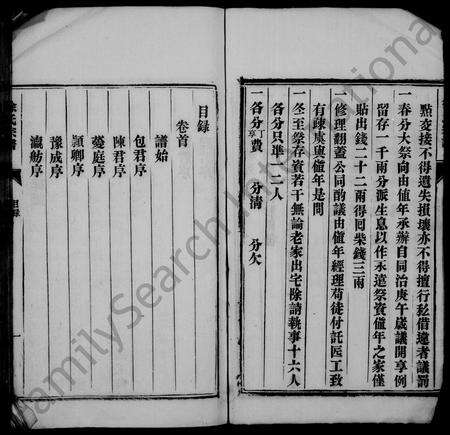 點交接不得遺失損壞亦不得擅行私借違者議罰
一春分大祭向由值年承辦自同治庚午歲議開享例
留存一千兩分派生息以作永遠祭資值年之家僅
貼出錢二十二兩得囘柴錢三兩
一修理翻蓋公同酌議由值年經理荷徒付託匠工致
有疎虞與值年是問
一冬至祭存資若干無論老家出宅除請執事十六人
各分只準一二人
一各分丁享費 分清 分欠
目錄
卷首
譜始
包君序
陳君序
蓂庭序
穎卿序
豫成序
瀛舫序
一
FamilySearch International